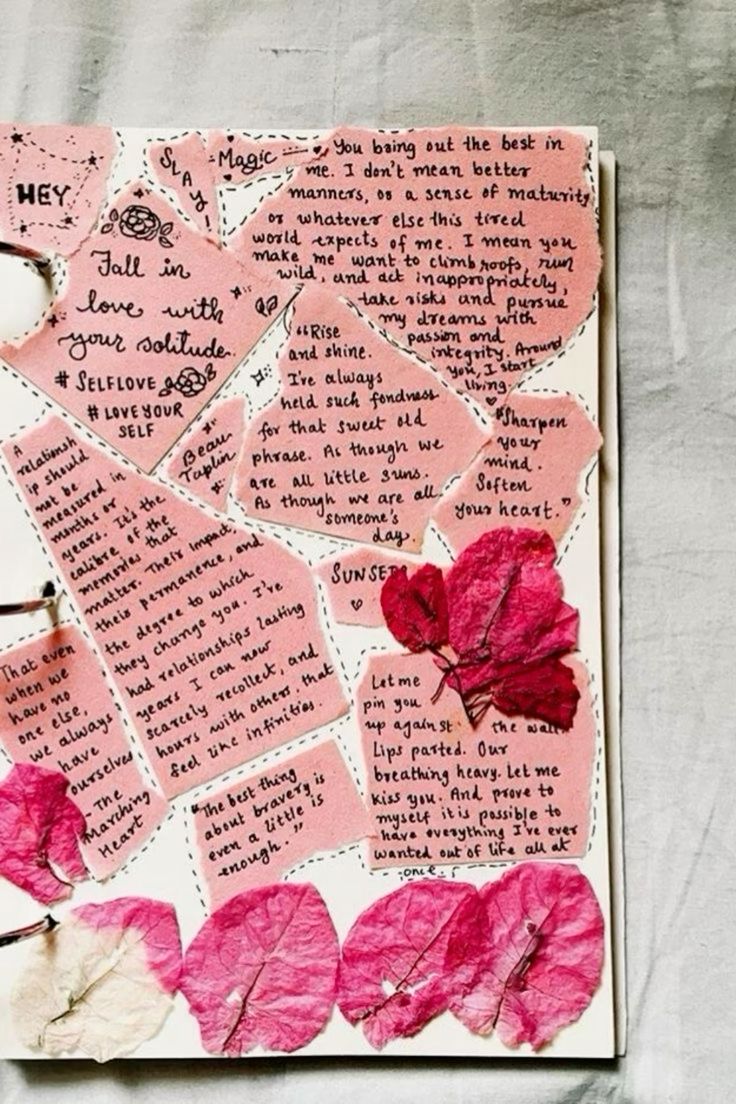 HEY
SLAY!
Magic
You bring out the best in
me. I don't mean better
manners, or a sense of maturity
or whatever else this tired
world expects of me. I mean you
make me want to climb roofs, run
wild, and act inappropriately,
take risks and pursue
my dreams with
passion and
integrity. Around
you, I start
living.
Fall in
love with
your solitude.
#SELFLOVE
#LOVEYOUR
SELF
"Rise
and shine.
I've always
held such fondness
for that sweet old
phrase. As though we
are all little suns.
As though we are all
someone's
day.
Beau
Taplin
"Sharpen
your
mind.
Soften
your heart."
A
relationsh
ip should
not be
measured in
months or
years. It's the
calibre of the
memories that
matter. Their impact,
their permanence, and
the degree to which
they change you. I've
had relationships lasting
years I can now
scarcely recollect, and
hours with others, that
feel like infinities.
SUNSET
That even
when we
have no
one else,
we always
have
ourselves
- The
Marching
Heart
"The best thing
about bravery is
even a little is
enough."
Let me
pin you
up against the wall
Lips parted. Our
breathing heavy. Let me
kiss you. And prove to
myself it is possible to
have everything I've ever
wanted out of life all at
once.